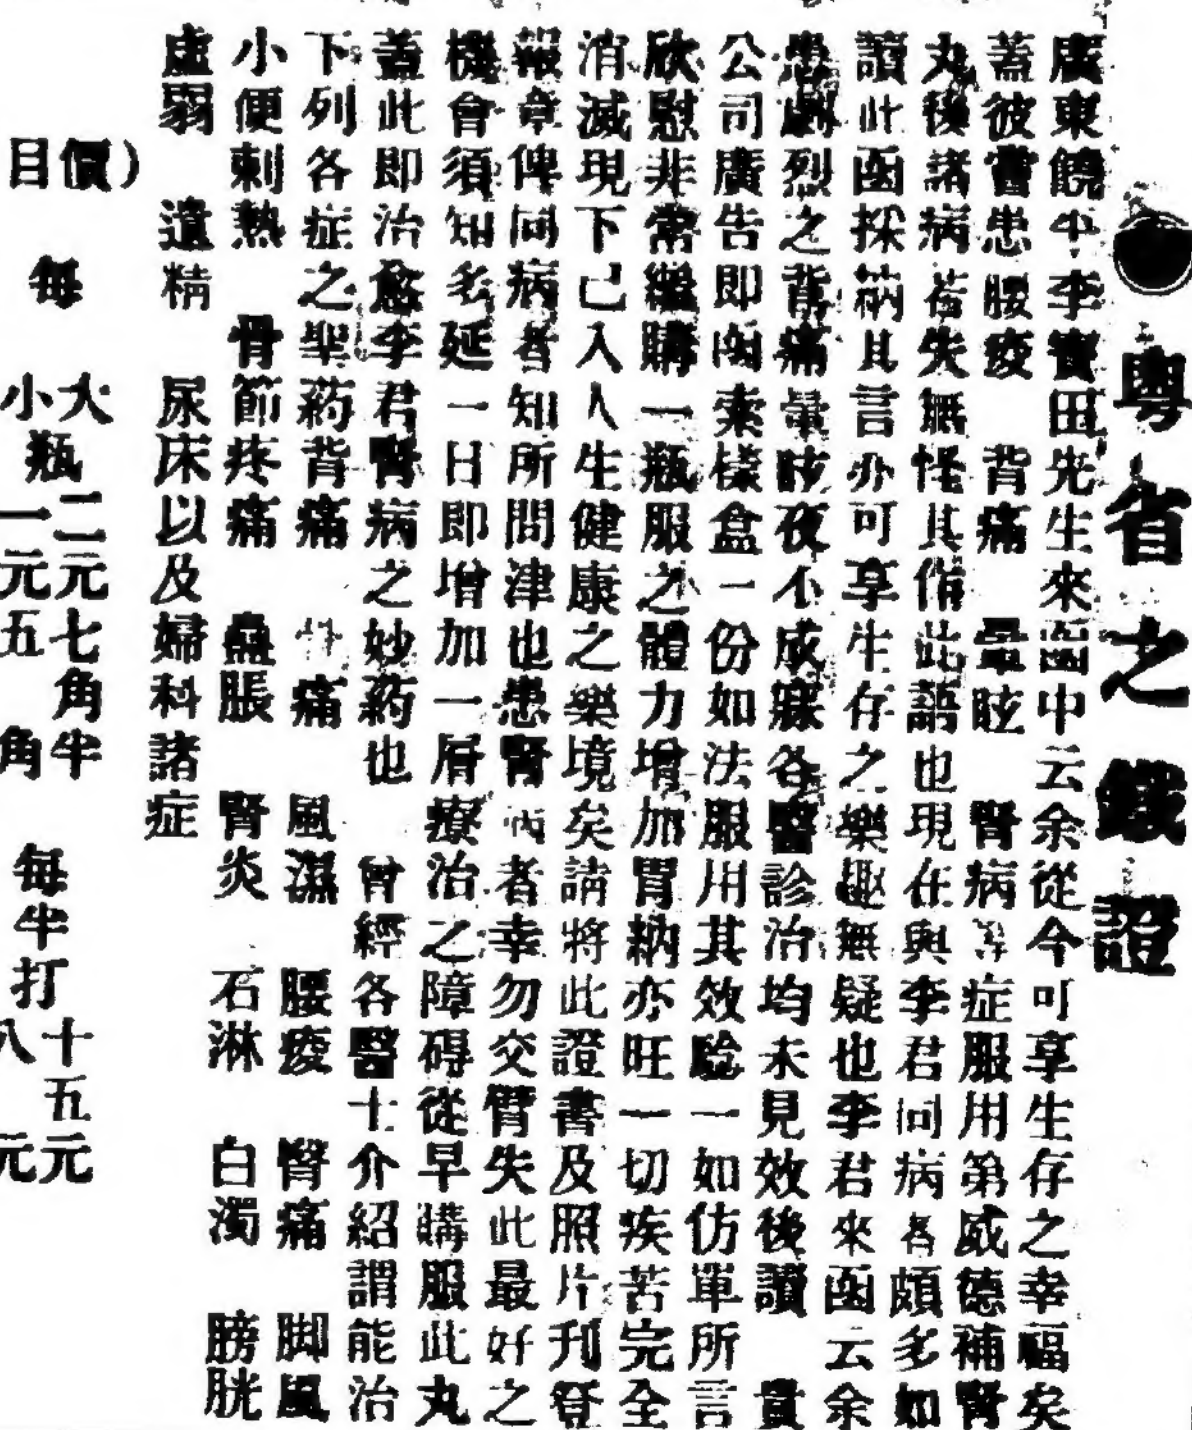 粵省之鐵證
廣東饒平李寶田先生來函中云余從今可享生存之幸福矣
蓋彼嘗患腰痠 背痛 暈眩 腎病等症服用第威德補腎
丸後諸病若失無怪其作此語也現在與李君同病者頗多如
讀此函採納其言亦可享生存之樂趣無疑也李君來函云余
患劇烈之背痛暈眩夜不成寐各醫診治均未見效後讀 貴
公司廣告即函索樣盒一份如法服用其效驗一如仿單所言
欣慰非常繼購一瓶服之體力增加胃納亦旺一切疾苦完全
消滅現下已入人生健康之樂境矣請將此證書及照片刋登
報章俾同病者知所問津也患腎病者幸勿交臂失此最好之
機會須知多延一日即增加一層療治之障碍從早購服此丸
蓋此即治愈李君腎病之妙葯也 曾經各醫士介紹謂能治
下列各症之聖葯背痛 性痛 風濕 腰痠 腎痛 脚風
小便刺熱 骨節疼痛 蠱脹 腎炎 石淋 白濁 膀胱
虛弱 遺精 尿床以及婦科諸症
價目) 每 大小瓶 二元七角半 一元五角 每半打 十五元 八元